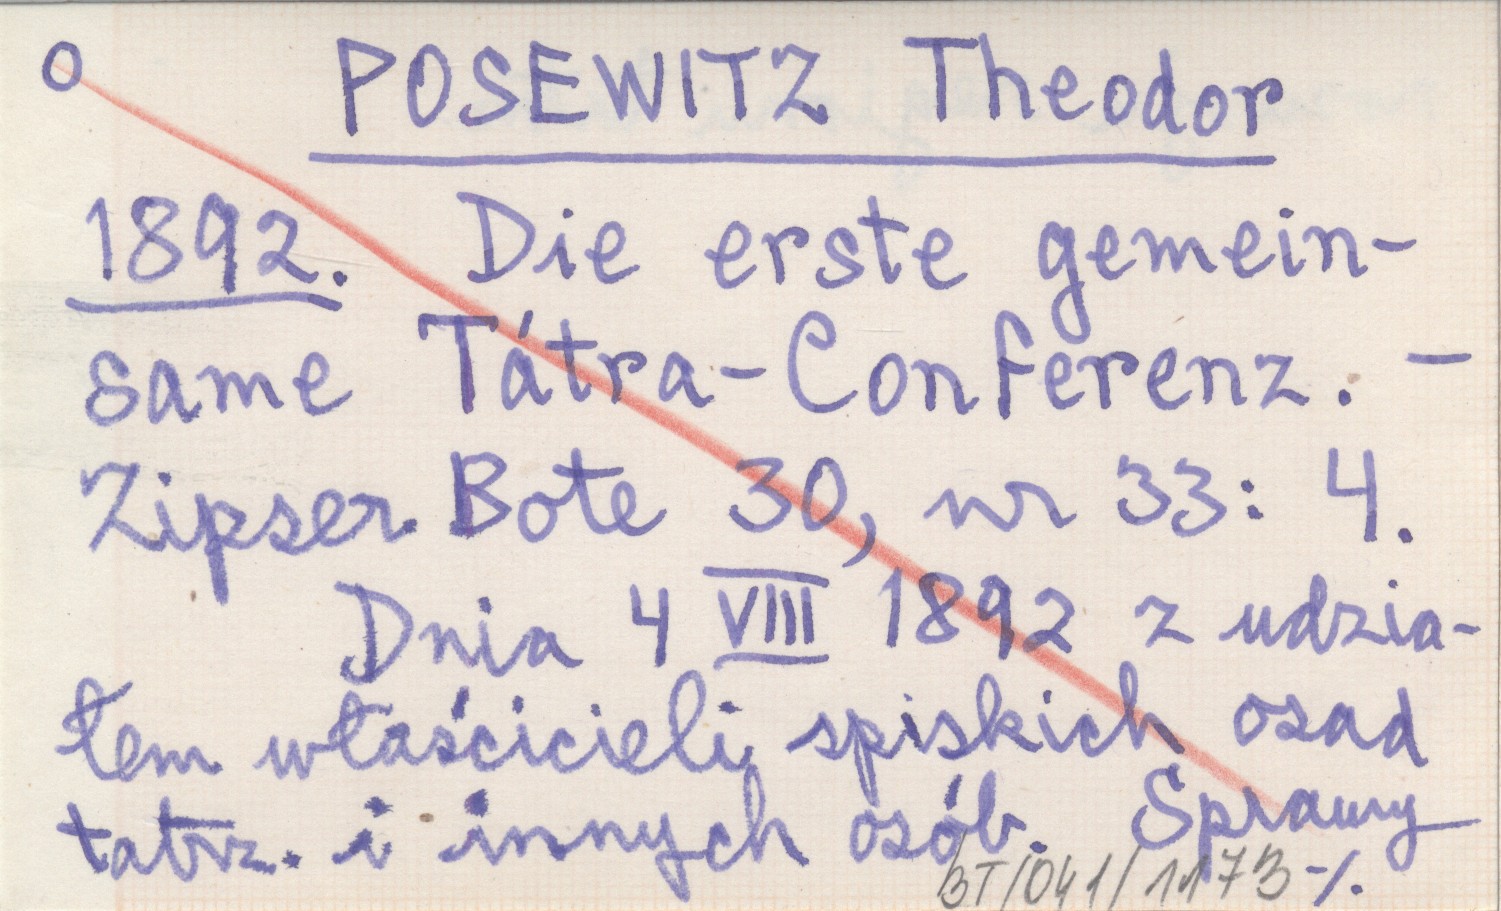 O POSEWITZ Theodor
1892. Die erste gemein-
same Tátra-Conferenz. —
Zipser Bote 30, nr 33: 4.
Dnia 4 VIII 1892 z udzia-
łem właścicieli spiskich osad
tatrz. i innych osób. Sprawy
BT/041/1173 -/.